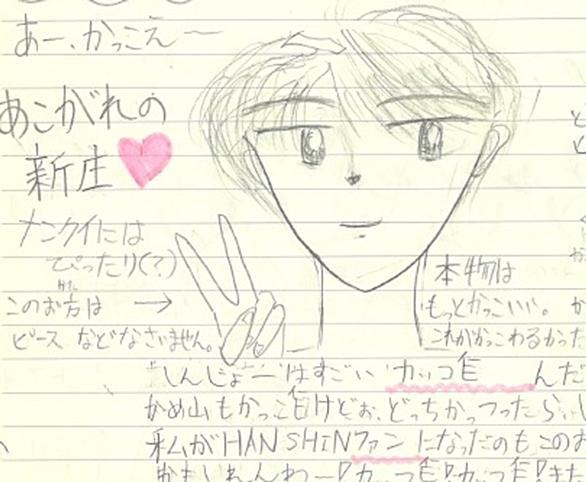 あー、かっこえ〜
あこがれの
新庄
メンクイには
ぴったり(?)
このお方は →
かた
ピース などなさいません。
本物は
もっとかっこいい。
これがかっこわるかった
"しんじょー"はすごい カッコ
かめ山もかっこ けどぉ、どっちかっつったら
私がHANSHINファンになったのも、このお
かもしれんわー!